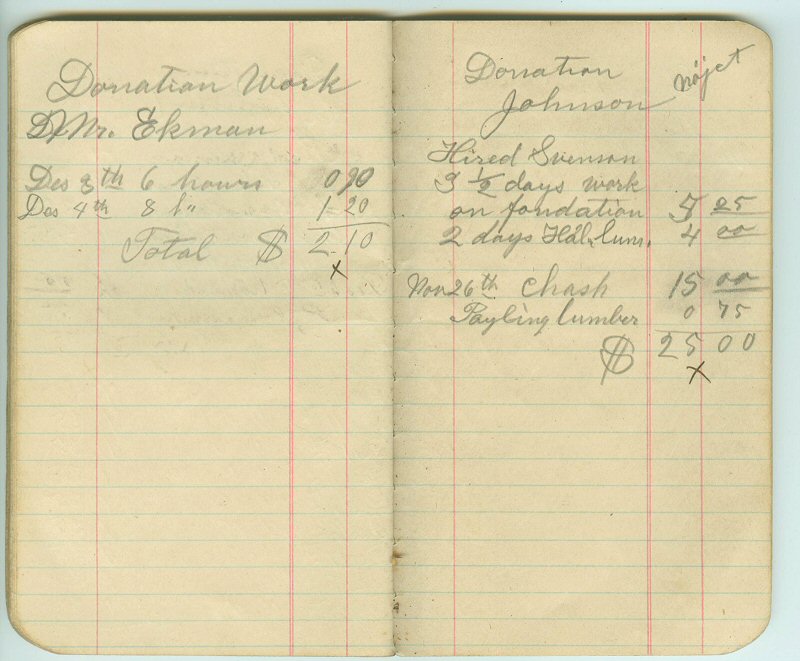 Donation Work
Mr. Ekman
Des 3th 6 hours 0 90
Des 4th 8 h" 1 20
Total $ 2.10
x
Donation
nöjet
Johnson
Hired Svenson
3 1/2 days work
on fondation 5 25
2 days Hål. lum. 4 00
Nov 26th Chash 15 00
Payling lumber 0 75
$ 25 00
x